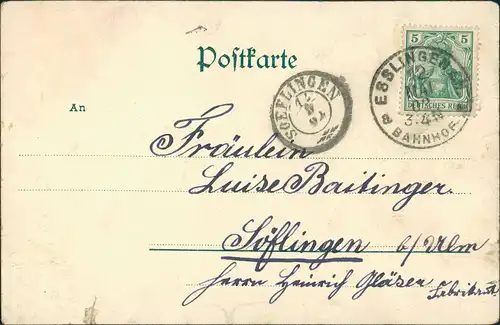 Postkarte
5
DEUTSCHES REICH
ESSLINGEN
3-4 N
BAHNHOF
SOEFLINGEN
An
Fräulein
Luise Baitinger.
Söflingen b/Ulm
Herrn Heinrich Gläser
Fabrikant